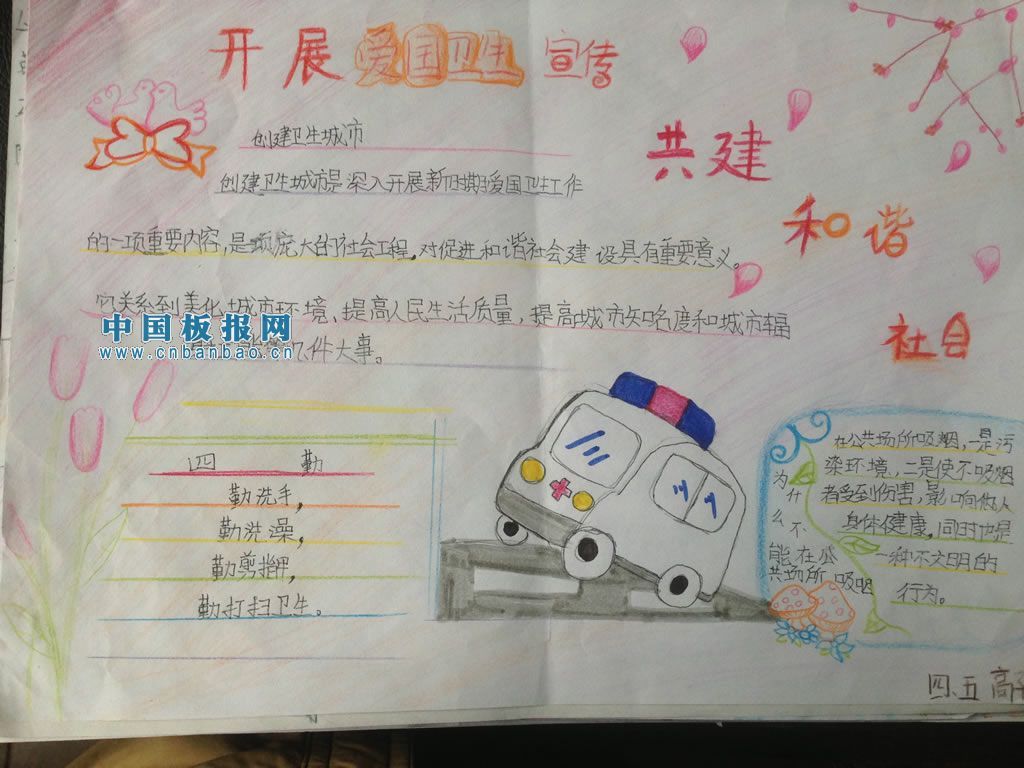 开展爱国卫生宣传
共建
和谐
社会
创建卫生城市
创建卫生城市是深入开展新时期爱国卫生工作
的一项重要内容,是项庞大的社会工程,对促进和谐社会建设具有重要意义。
它关系到美化城市环境、提高人民生活质量,提高城市知名度和城市辐
几件大事。
中国板报网
www.cnbanbao.cn
四 勤
勤洗手,
勤洗澡,
勤剪指甲,
勤打扫卫生。
为
什
么
不
能在公
共场所吸烟
在公共场所吸烟,一是污
染环境,二是使不吸烟
者受到伤害,影响他人
身体健康,同时也是
一种不文明的
行为。
四、五 高